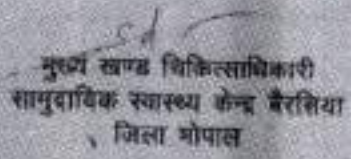 Sd
मुख्य खण्ड चिकित्साधिकारी
सामुदायिक स्वास्थ्य केन्द्र बैरसिया
जिला भोपाल